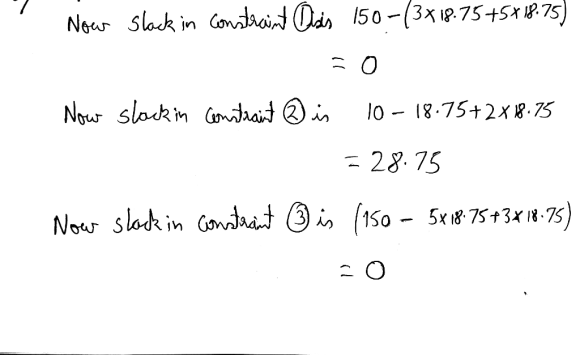 Now slack in constraint ① is 150 - (3×18.75+5×18.75)
= 0
Now slack in constraint ② is 10 - 18.75+2×18.75
= 28.75
Now slack in constraint ③ is (150 - 5×18.75+3×18.75)
= 0